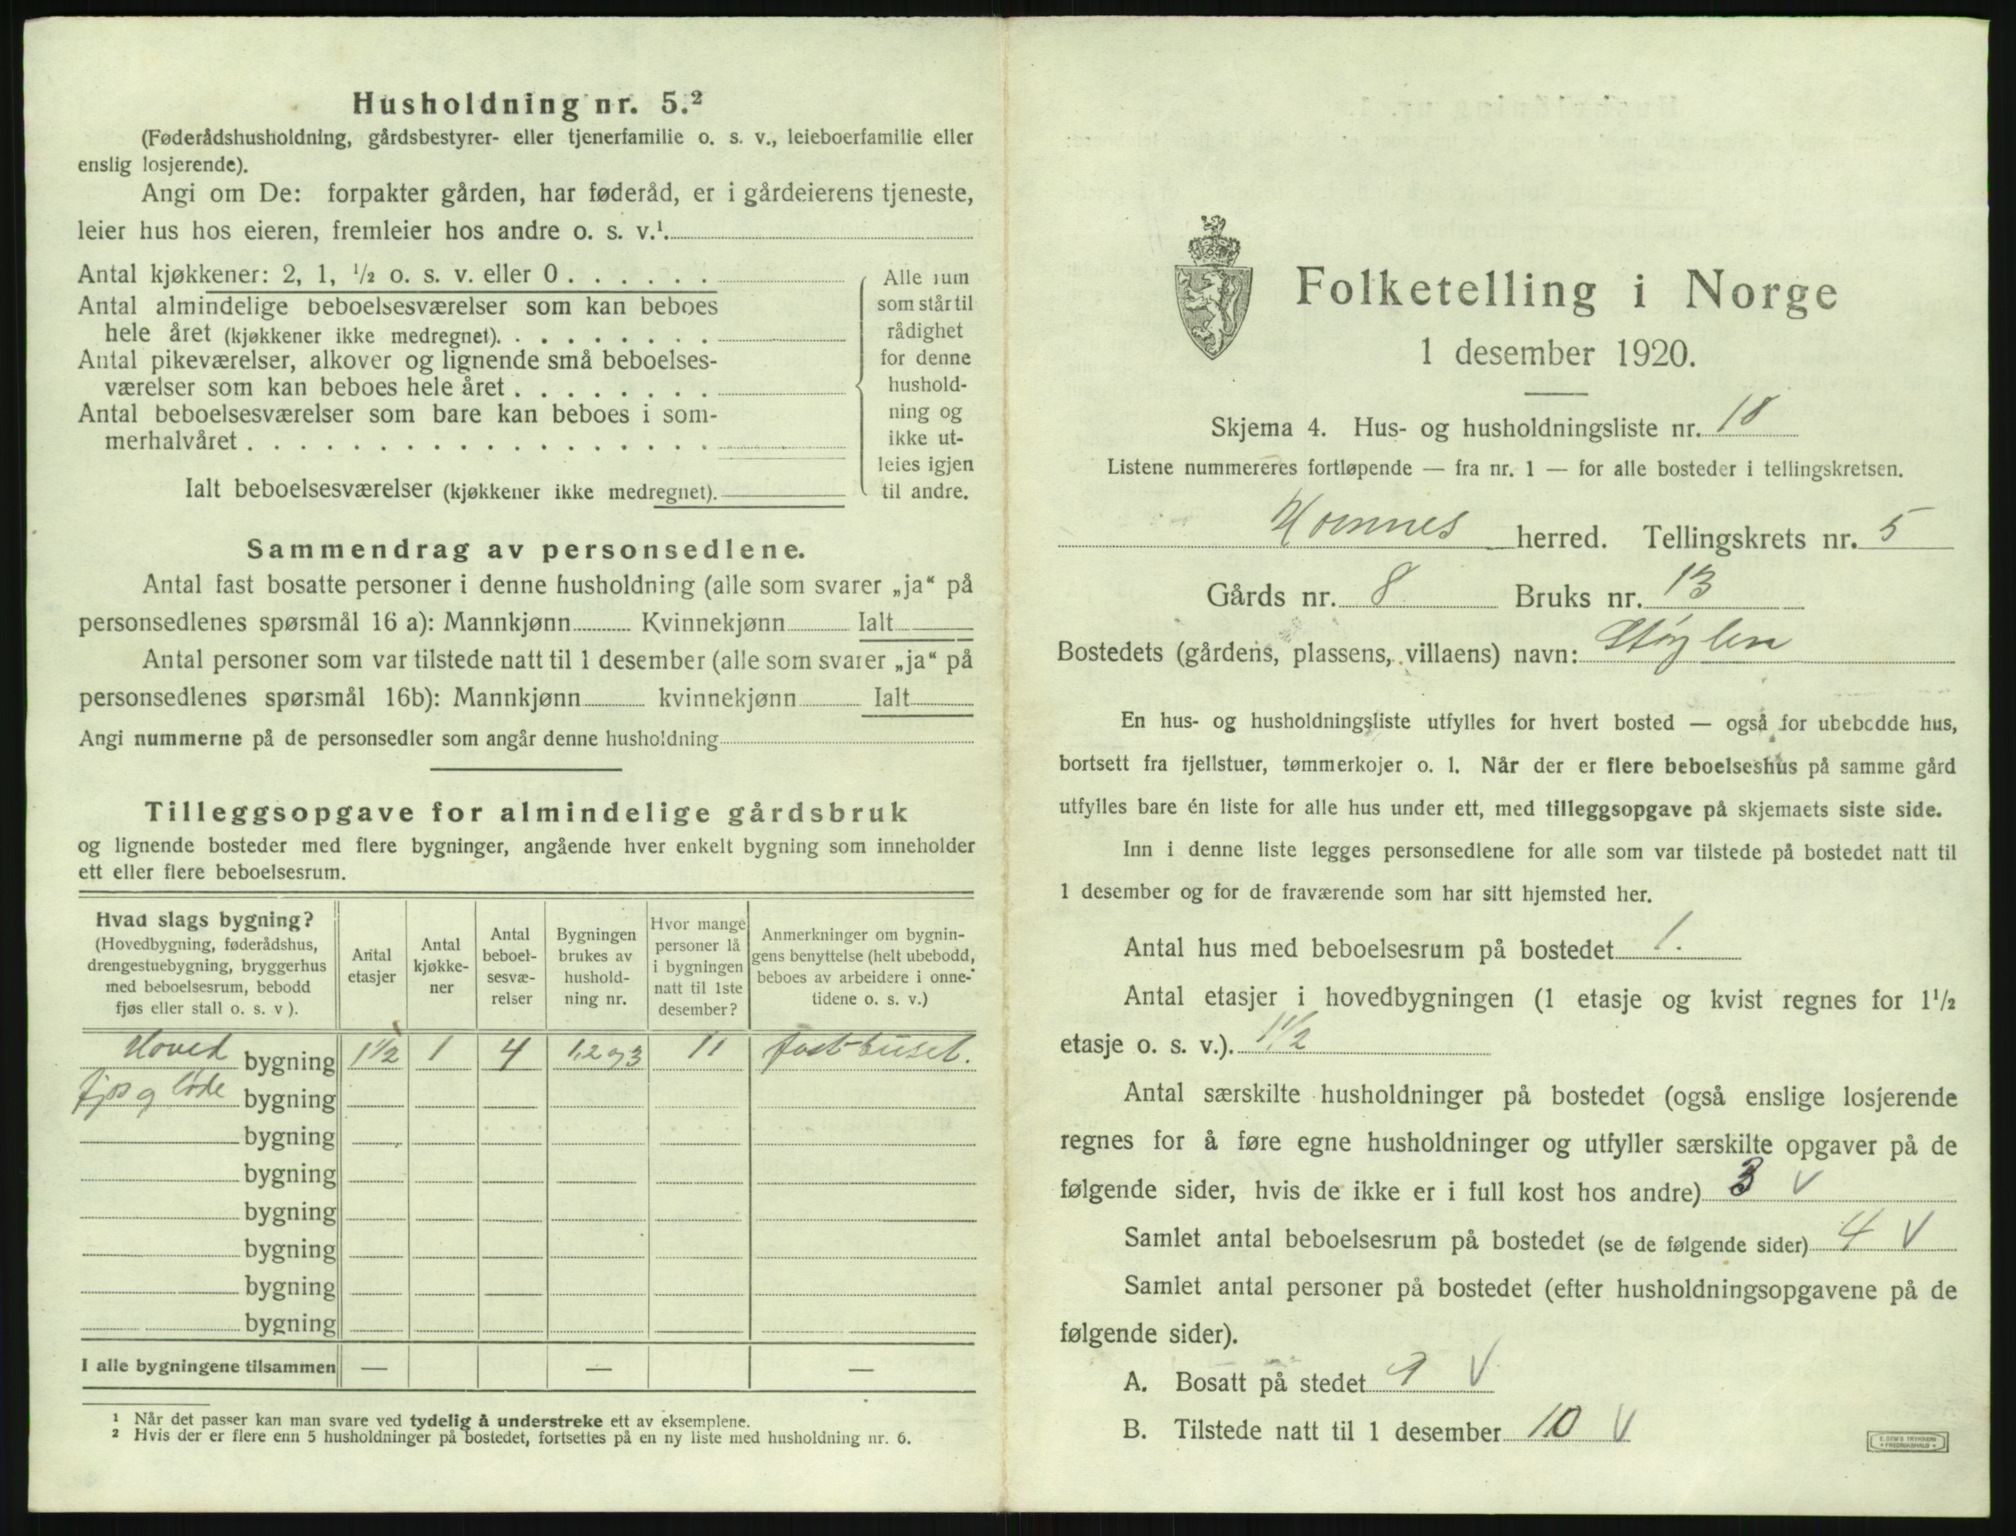 Husholdning nr. 5.²
(Føderådshusholdning, gårdsbestyrer- eller tjenerfamilie o. s. v., leieboerfamilie eller
enslig losjerende).
Angi om De: forpakter gården, har føderåd, er i gårdeierens tjeneste,
leier hus hos eieren, fremleier hos andre o. s. v.¹.
Antal kjøkkener: 2, 1, ½ o. s. v. eller 0
Antal almindelige beboelsesværelser som kan beboes
hele året (kjøkkener ikke medregnet).
Antal pikeværelser, alkover og lignende små beboelses-
værelser som kan beboes hele året
Antal beboelsesværelser som bare kan beboes i som-
merhalvåret
Ialt beboelsesværelser (kjøkkener ikke medregnet).
Alle rum
som står til
rådighet
for denne
hushold-
ning og
ikke ut-
leies igjen
til andre.
Sammendrag av personsedlene.
Antal fast bosatte personer i denne husholdning (alle som svarer „ja“ på
personsedlenes spørsmål 16 a): Mannkjønn Kvinnekjønn Ialt
Antal personer som var tilstede natt til 1 desember (alle som svarer „ja“ på
personsedlenes spørsmål 16b): Mannkjønn kvinnekjønn Ialt
Angi nummerne på de personsedler som angår denne husholdning
Tilleggsopgave for almindelige gårdsbruk
og lignende bosteder med flere bygninger, angående hver enkelt bygning som inneholder
ett eller flere beboelsesrum.
Hvad slags bygning?
(Hovedbygning, føderådshus,
drengestuebygning, bryggerhus
med beboelsesrum, bebodd
fjøs eller stall o. s. v ).
Antal
etasjer
Antal
kjøkke-
ner
Antal
beboel-
sesvæ-
relser
Bygningen
brukes av
hushold-
ning nr.
Hvor mange
personer lå
i bygningen
natt til 1ste
desember?
Anmerkninger om bygnin-
gens benyttelse (helt ubebodd,
beboes av arbeidere i onne-
tidene o. s. v.)
Hoved bygning 1½ 1 4 1,2 og 3 11
og løde bygning
bygning
bygning
bygning
bygning
bygning
bygning
I alle bygningene tilsammen — — —
¹ Når det passer kan man svare ved tydelig å understreke ett av eksemplene.
² Hvis der er flere enn 5 husholdninger på bostedet, fortsettes på en ny liste med husholdning nr. 6.
Folketelling i Norge
1 desember 1920.
Skjema 4. Hus- og husholdningsliste nr. 18
Listene nummereres fortløpende — fra nr. 1 — for alle bosteder i tellingskretsen.
Hornnes herred. Tellingskrets nr. 5
Gårds nr. 8 Bruks nr. 13
Bostedets (gårdens, plassens, villaens) navn:
En hus- og husholdningsliste utfylles for hvert bosted — også for ubebodde hus,
bortsett fra fjellstuer, tømmerkojer o. l. Når der er flere beboelseshus på samme gård
utfylles bare én liste for alle hus under ett, med tilleggsopgave på skjemaets siste side.
Inn i denne liste legges personsedlene for alle som var tilstede på bostedet natt til
1 desember og for de fraværende som har sitt hjemsted her.
Antal hus med beboelsesrum på bostedet 1.
Antal etasjer i hovedbygningen (1 etasje og kvist regnes for 1½
etasje o. s. v.). 1½
Antal særskilte husholdninger på bostedet (også enslige losjerende
regnes for å føre egne husholdninger og utfyller særskilte opgaver på de
følgende sider, hvis de ikke er i full kost hos andre) 3 V
Samlet antal beboelsesrum på bostedet (se de følgende sider) 4 V
Samlet antal personer på bostedet (efter husholdningsopgavene på de
følgende sider).
A. Bosatt på stedet 9 V
B. Tilstede natt til 1 desember 10 V